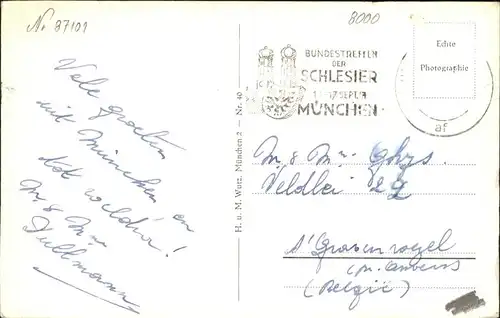 Nr 87101
8000
BUNDESTREFFEN
DER
SCHLESIER
MÜNCHEN
Echte
Photographie
af
Vele groeten
uit München en
tot weldra!
M & Mme
Dullmann
H. u. M. Wurz, München 2 - Nr. 40
M & Mme Ghys.
Veldlei 22
s'Gravenwezel
(Belgïe)